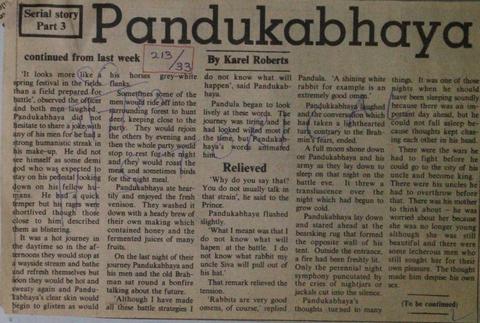 Serial story
Part 3
Pandukabhaya
continued from last week
213/33
By Karel Roberts
'It looks more like a
spring festival in the fields
than a field prepared for
battle', observed the officer
and both men laughed.
Pandukabhaya did not
hesitate to share a joke with
any of his men for he had a
strong humanistic streak in
his make-up. He did not
see himself as some demi
god who was expected to
stay on his pedestal looking
down on his fellow hu-
mans. He had a quick
temper but his rages were
shortlived though those
close to him described
them as blistering.
It was a hot journey in
the daytime so in the af-
ternoons they would stop at
a wayside stream and bathe
and refresh themselves but
soon they would be hot and
sweaty again and Pandu-
kabhaya's clear skin would
begin to glisten as would
his horses grey-white
flanks.
Sometimes some of the
men would ride off into the
surrounding forest to hunt
deer, keeping close to the
party. They would rejoin
the others by evening and
then the whole party would
stop to rest for the night
and they would roast the
meat and sometimes birds
for the night meal.
Pandukabhaya ate hear-
tily and enjoyed the fresh
venison. They washed it
down with a heady brew of
their own making which
contained honey and the
fermented juices of many
fruits.
On the last night of their
journey Pandukabhaya and
his men and the old Brah-
man sat round a bonfire
talking about the future.
'Although I have made
all these battle strategies I
do not know what will
happen', said Pandukab-
haya.
Pandula began to look
lively at these words. The
journey was tiring and he
had looked wilted most of
the time, but Pandukab-
haya's words
him.
Relieved
'Why do you say that?
You do not usually talk in
that strain', he said to the
Prince.
Pandukabhaya flushed
slightly.
'What I meant was that I
do not know what will
happen at the battle. I do
not know what rabbit my
uncle Siva will pull out of
his hat.'
That remark relieved the
tension.
'Rabbits are very good
omens, of course,' replied
Pandula. 'A shining white
rabbit for example is an
extremely good omen.'
Pandukabhaya laughed
and the conversation which
had taken a lighthearted
turn contrary to the Brah-
min's fears, ended.
A full moon shone down
on Pandukabhaya and his
army as they lay down to
sleep on that night on the
battle eve. It threw a
transluscence over the
night which had begun to
grow cold.
Pandukabhaya lay down
and stared ahead at the
bearskin rug that formed
the opposite wall of his
tent. Outside the entrance,
a fire had been freshly lit.
Only the perennial night
symphony punctuated by
the cries of nightjars or
jackals cut into the silence.
Pandukabhaya's
thoughts turned to many
things. It was one of those
nights when he should
have been sleeping soundly
because there was an im-
portant day ahead, but he
could not fall asleep because
thoughts kept chas-
ing each other in his head.
There were the wars he
had to fight before he
could go to the city of his
uncle and become king.
There were his uncles he
had to overthrow before
that. There was his mother
to think about — he was
worried about her because
she was no longer young
although she was still
beautiful and there were
some lecherous men who
still sought her for their
own pleasure. The thought
made him despise his own
sex.
(To be continued)